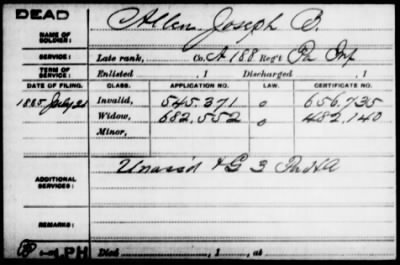 DEAD
NAME OF SOLDIER: Allen Joseph B.
SERVICE: Late rank, Co. A 188 Reg't Pa Inf
TERM OF SERVICE: Enlisted , 1 Discharged , 1
DATE OF FILING. CLASS. APPLICATION NO. LAW. CERTIFICATE NO.
1885 July 21 Invalid, 545.371 o 656.735
Widow, 682.552 o 482.140
Minor,
ADDITIONAL SERVICES: Unass'd & G 3 Pa H A
REMARKS:
LPH Died , 1 , at